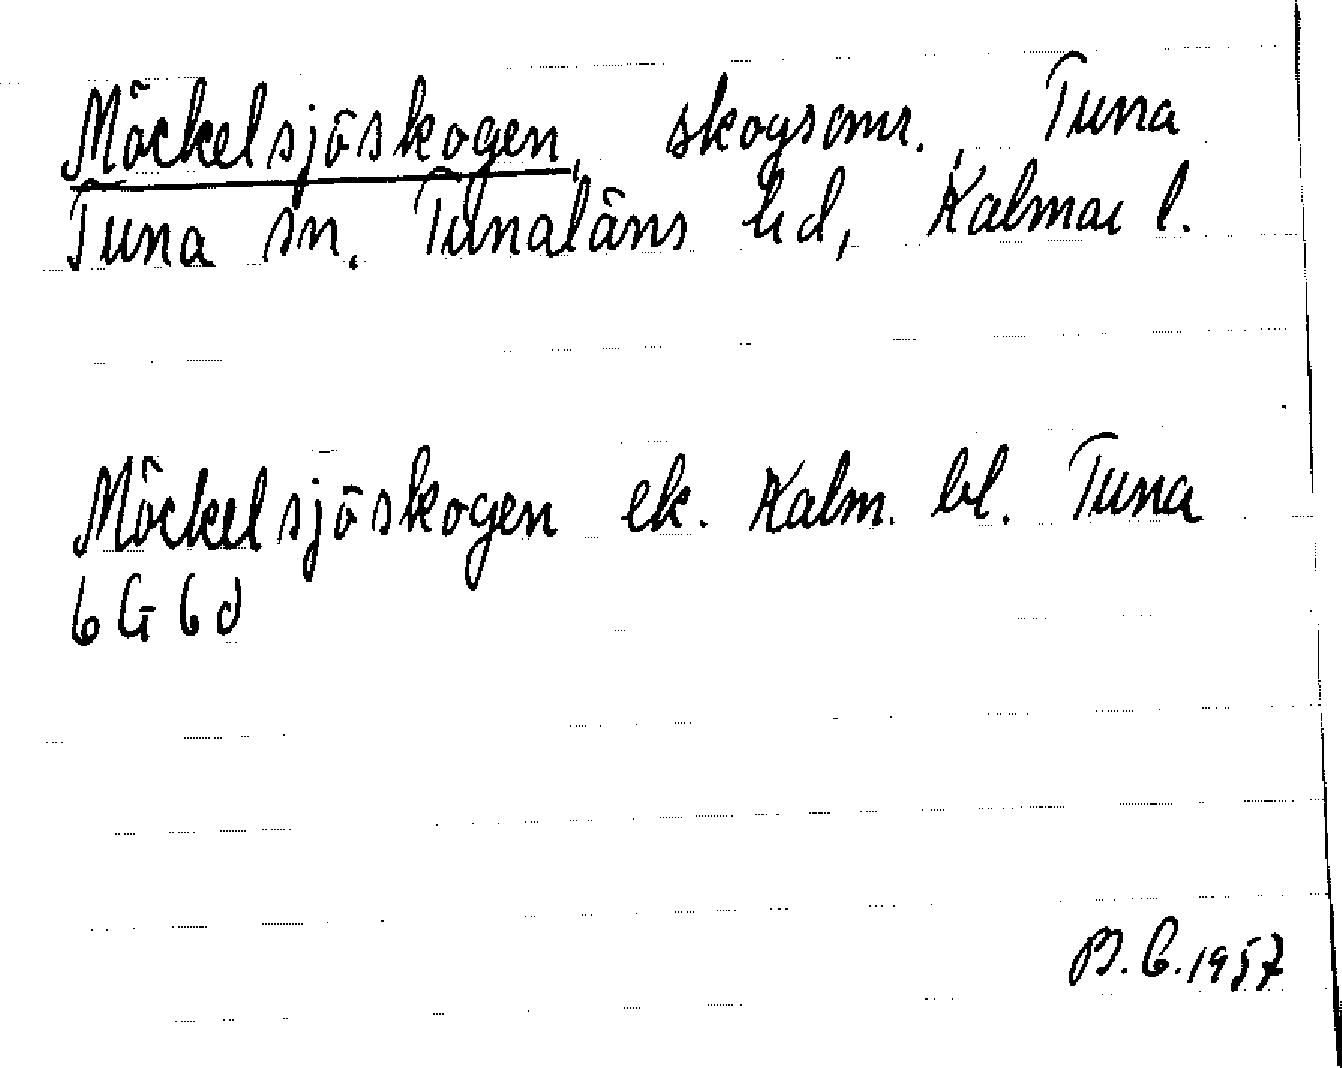 Möckelsjöskogen, skogsomr., Tuna
Tuna sn. Tunaläns hd, Kalmar l.
Möckelsjöskogen ek. Kalm. bl. Tuna
6G6d
B.C.1957